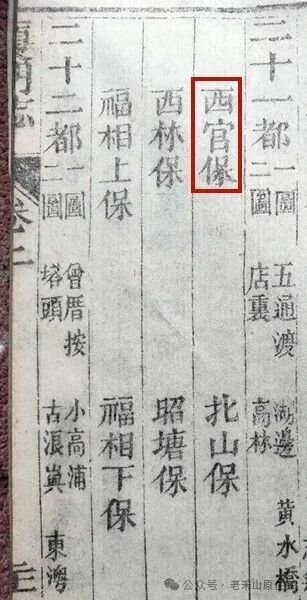 二十一都 一圖 二圖 五通渡 店裏 湖邊 高林 黄水橋
西官保 北山保
西林保 昭塘保
福相上保 福相下保
二十二都 一圖 二圖 曾厝按 塔頭 小高浦 古浪嶼 東灣
門志 卷二
公众号 · 老禾山原